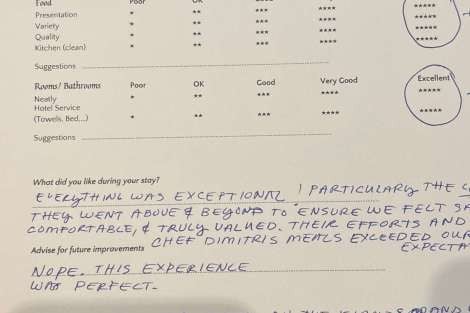 Food Poor OK Good Very Good
Presentation * ** *** **** *****
Variety * ** *** **** *****
Quality * ** *** **** *****
Kitchen (clean) * ** *** **** *****
Suggestions
Rooms/ Bathrooms Poor OK Good Very Good Excellent
Neatly * ** *** **** *****
Hotel Service
(Towels, Bed,...) * ** *** **** *****
Suggestions
What did you like during your stay?
EVERYTHING WAS EXCEPTIONAL ! PARTICULARLY THE
THEY WENT ABOVE & BEYOND TO ENSURE WE FELT
COMFORTABLE, & TRULY VALUED. THEIR EFFORTS AND
CHEF DIMITRIS MEALS EXCEEDED OUR
Advise for future improvements EXPECTA
NOPE. THIS EXPERIENCE
WAS PERFECT.